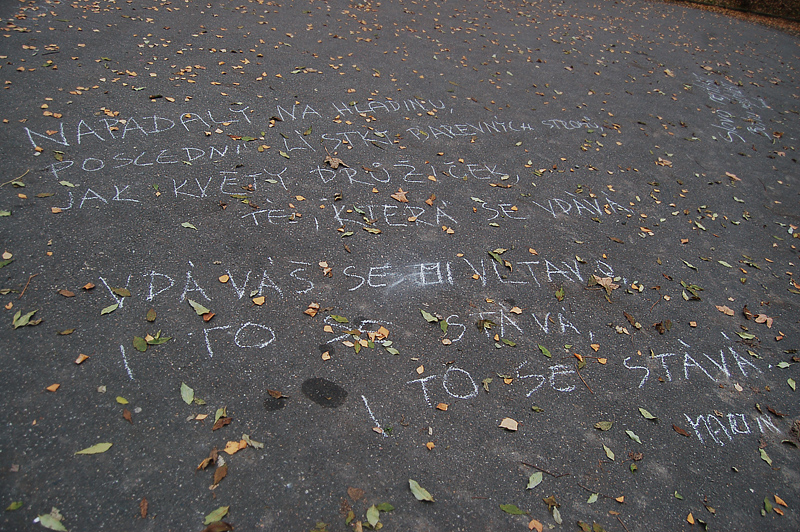 NAPADALY NA HLADINU,
POSLEDNÍ LÍSTKY BAREVNÝCH STROMŮ,
JAK KVĚTY DRUŽIČEK,
TÉ, KTERÁ SE VDÁVÁ
VDÁVÁŠ SE MI VLTAVO,
I TO SE STÁVÁ,
I TO SE STÁVÁ.
MARTIN